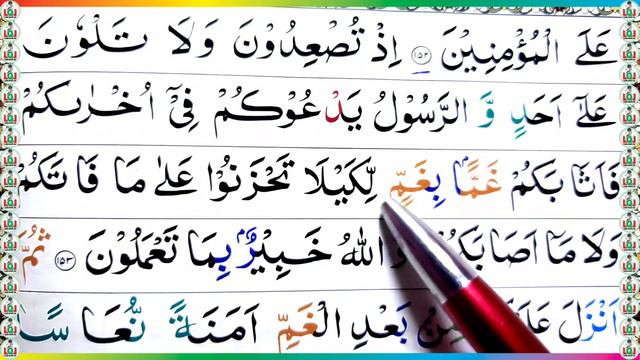 عَلَى الْمُؤْمِنِيْنَ ۝۱۵۲ اِذْ تُصْعِدُوْنَ وَلَا تَلْوٗنَ
عَلٰٓى اَحَدٍ وَّ الرَّسُوْلُ يَدْعُوْكُمْ فِىْٓ اُخْرٰىكُمْ
فَاَثَابَكُمْ غَمًّۢا بِغَمٍّ لِّكَيْلَا تَحْزَنُوْا عَلٰى مَا فَاتَكُمْ
وَلَا مَاۤ اَصَابَكُمْ وَاللّٰهُ خَبِيْرٌۢ بِمَا تَعْمَلُوْنَ ۝۱۵۳ ثُمَّ
اَنْزَلَ بَعْدِ الْغَمِّ اَمَنَةً نُّعَاسًا